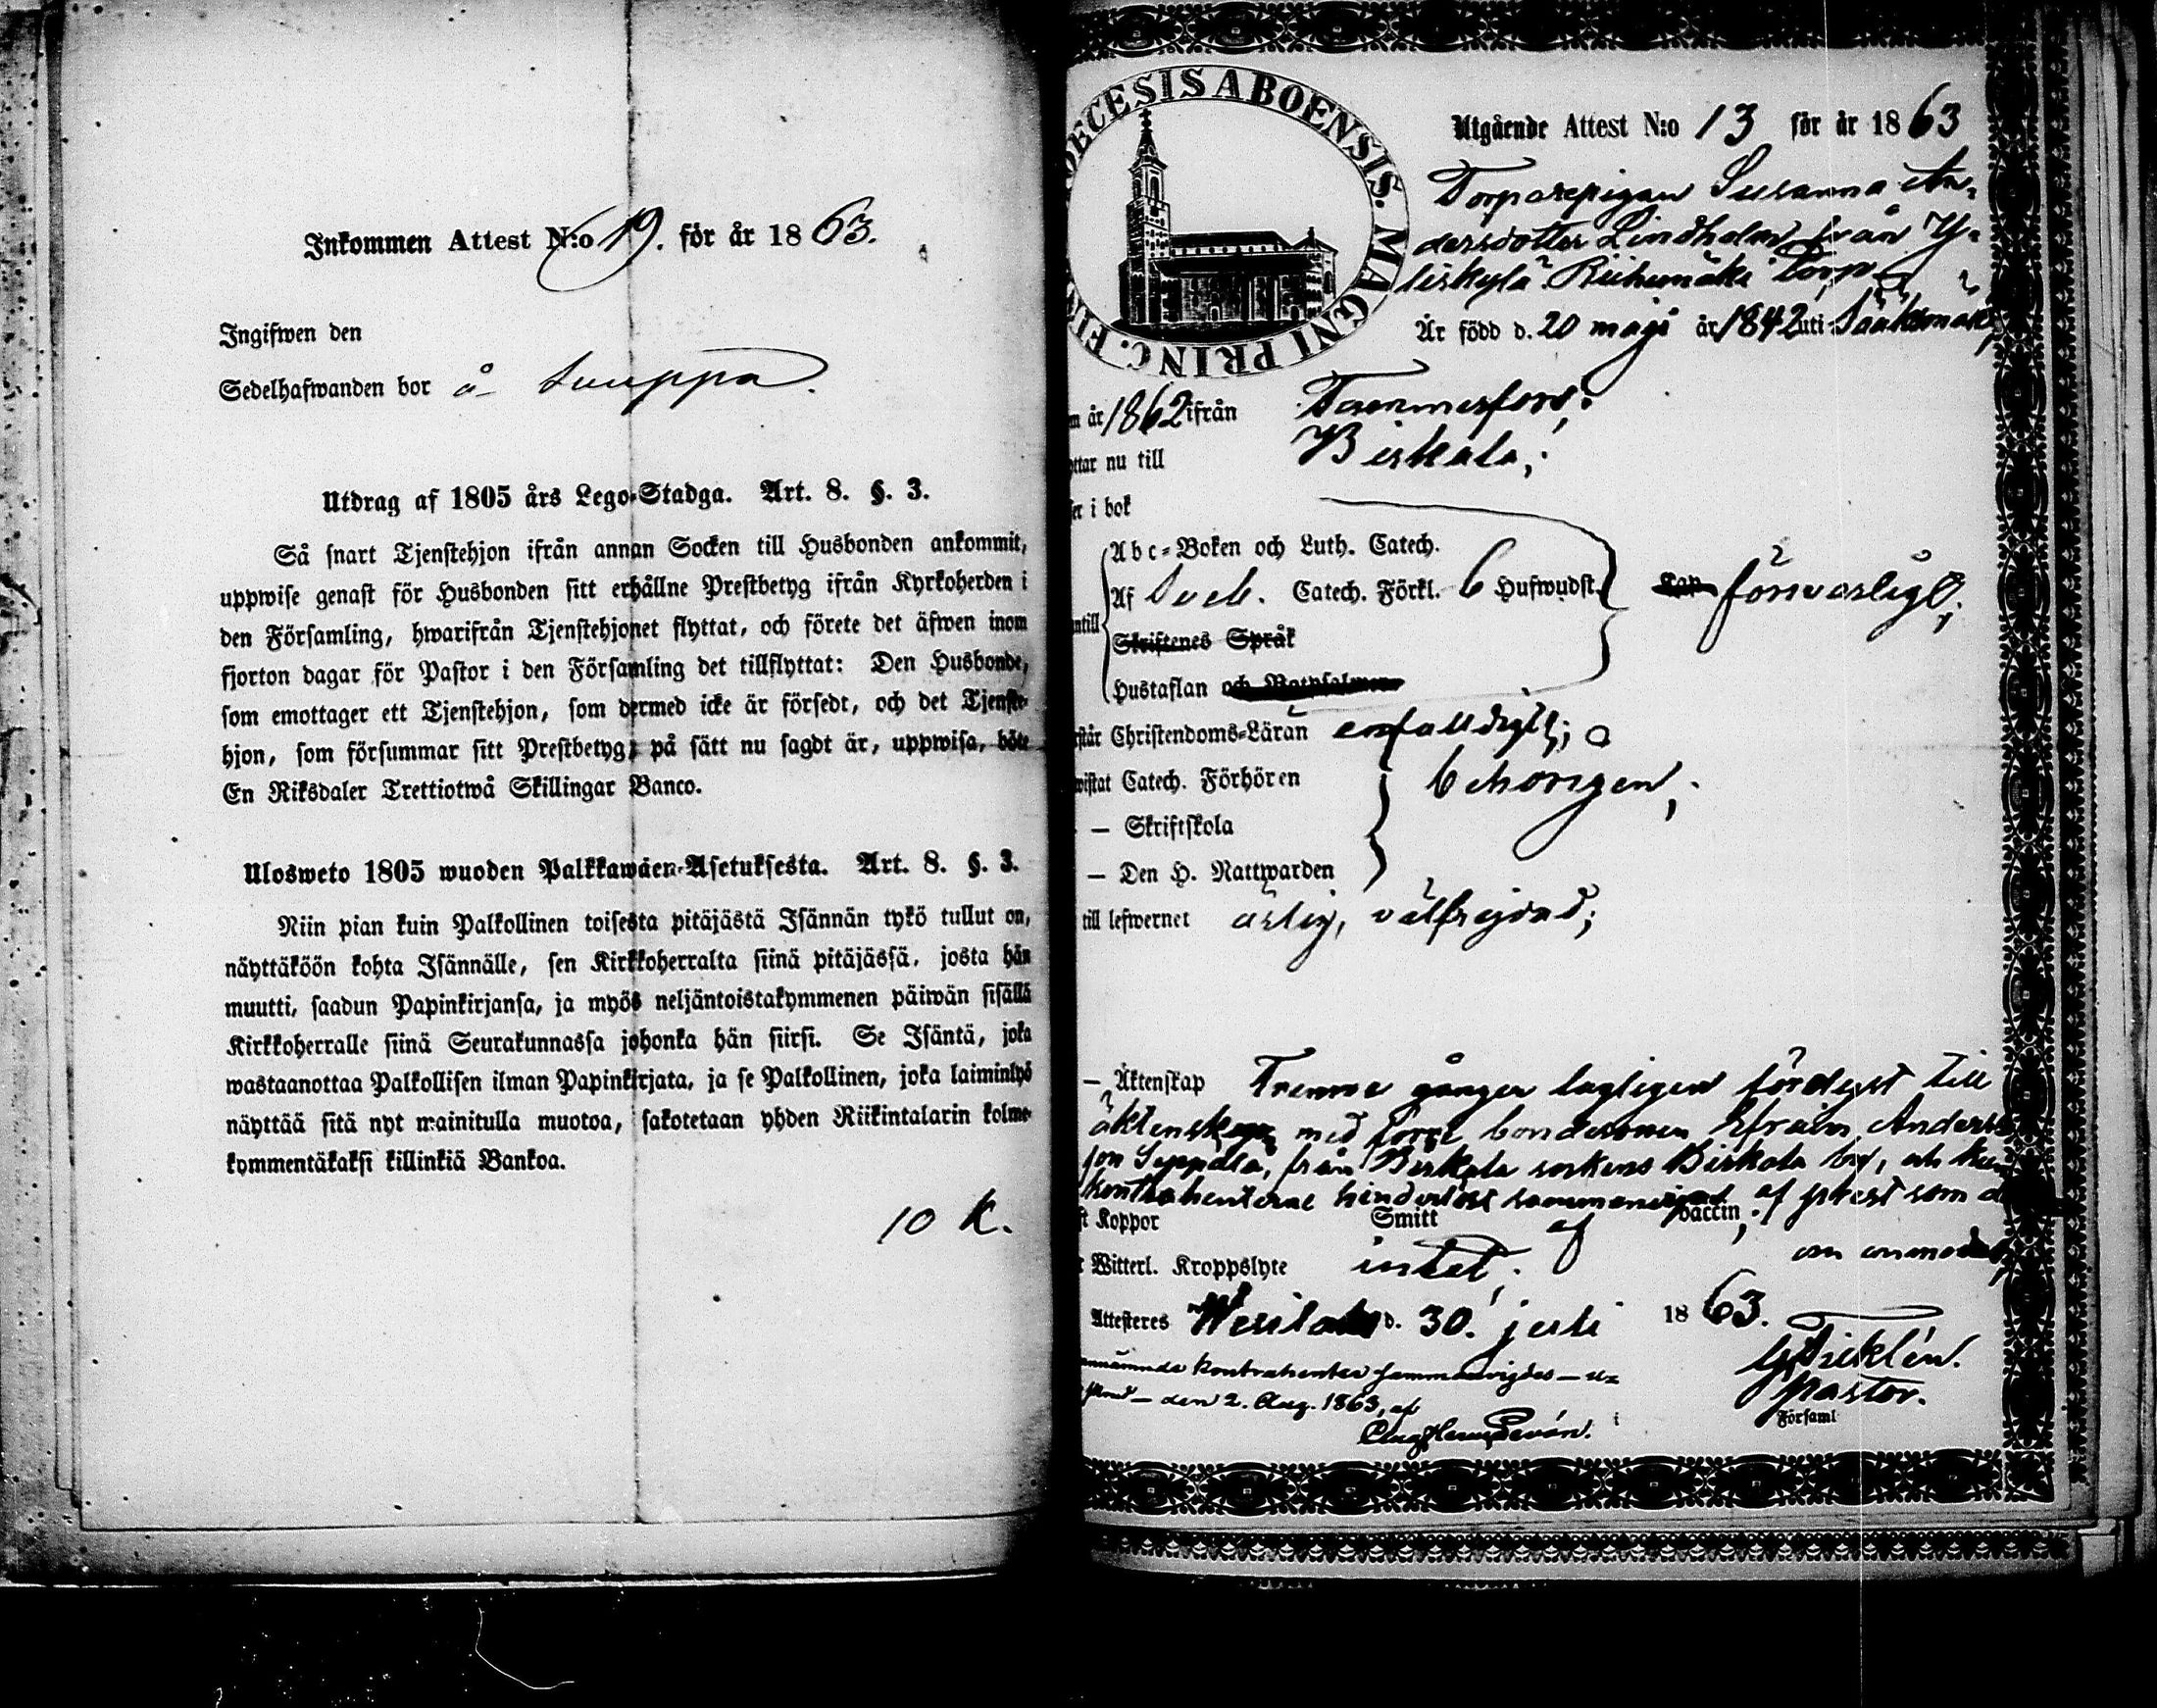 Inkommen Attest N:o 19. för år 1863.
Ingifwen den
Sedelhafwanden bor å Suuppa.
Utdrag af 1805 års Lego-Stadga. Art. 8. §. 3.
Så snart Tjenstehjon ifrån annan Socken till Husbonden ankommit,
uppwise genast för Husbonden sitt erhållne Prestbetyg ifrån Kyrkoherden i
den Församling, hwarifrån Tjenstehjonet flyttat, och förete det äfwen inom
fjorton dagar för Pastor i den Församling det tillflyttat: Den Husbonde,
som emottager ett Tjenstehjon, som dermed icke är försedt, och det Tjenste-
hjon, som försummar sitt Prestbetyg, på sätt nu sagdt är, uppwisa, böte
En Riksdaler Trettiotwå Skillingar Banco.
Ulosweto 1805 wuoden Palkkawäen-Asetuksesta. Art. 8. §. 3.
Niin pian kuin Palkollinen toisesta pitäjästä Isännän tykö tullut on,
näyttäköön kohta Isännälle, sen Kirkkoherralta siinä pitäjässä, josta hän
muutti, saadun Papinkirjansa, ja myös neljäntoistakymmenen päiwän sisällä
Kirkkoherralle siinä Seurakunnassa johonka hän siirsi. Se Isäntä, joka
wastaanottaa Palkollisen ilman Papinkirjata, ja se Palkollinen, joka laiminlyö
näyttää sitä nyt mainitulla muotoa, sakotetaan yhden Riikintalarin kolme-
kymmentäkaksi killinkiä Bankoa.
10 K.
DECESIS ABOENSIS. MAGNI PRINC. FIN
Utgående Attest N:o 13 för år 1863
Torparepigan Susanna An-
dersdotter Lindholm från Y-
liskylä Riihimäki Torp
Är född d. 20 maji år 1842 uti Sääksmäki,
år 1862 ifrån Tammerfors;
nu till Birkala;
i bok
Abc-Boken och Luth. Catech.
Af Sveb. Catech. Förkl. 6 Hufwudst. försvarligt;
Skriftenes Språk
Hustaflan och Botpsalmer
Christendoms-Läran enfaldigt;
Catech. Förhören behörigen;
— Skriftskola
— Den H. Nattwarden
till lefwernet ärlig, välfrejdad;
— Äktenskap Trenne gånger lagligen lyst till
äktenskap med bondesonen Efraim Anders-
son Seppälä, från Birkala sockens Birkala by, och kun
kontrahenterne hinderlöst sammanvigas af prest som
Koppor Smitt af vaccin,
om anmodas,
Witterl. Kroppslyte intet;
Attesteras Wesilaks d. 30. juli 1863.
G. Fricklén.
Pastor.
Församl
kontrahenter sammanvigdes —
— den 2. Aug. 1863, af